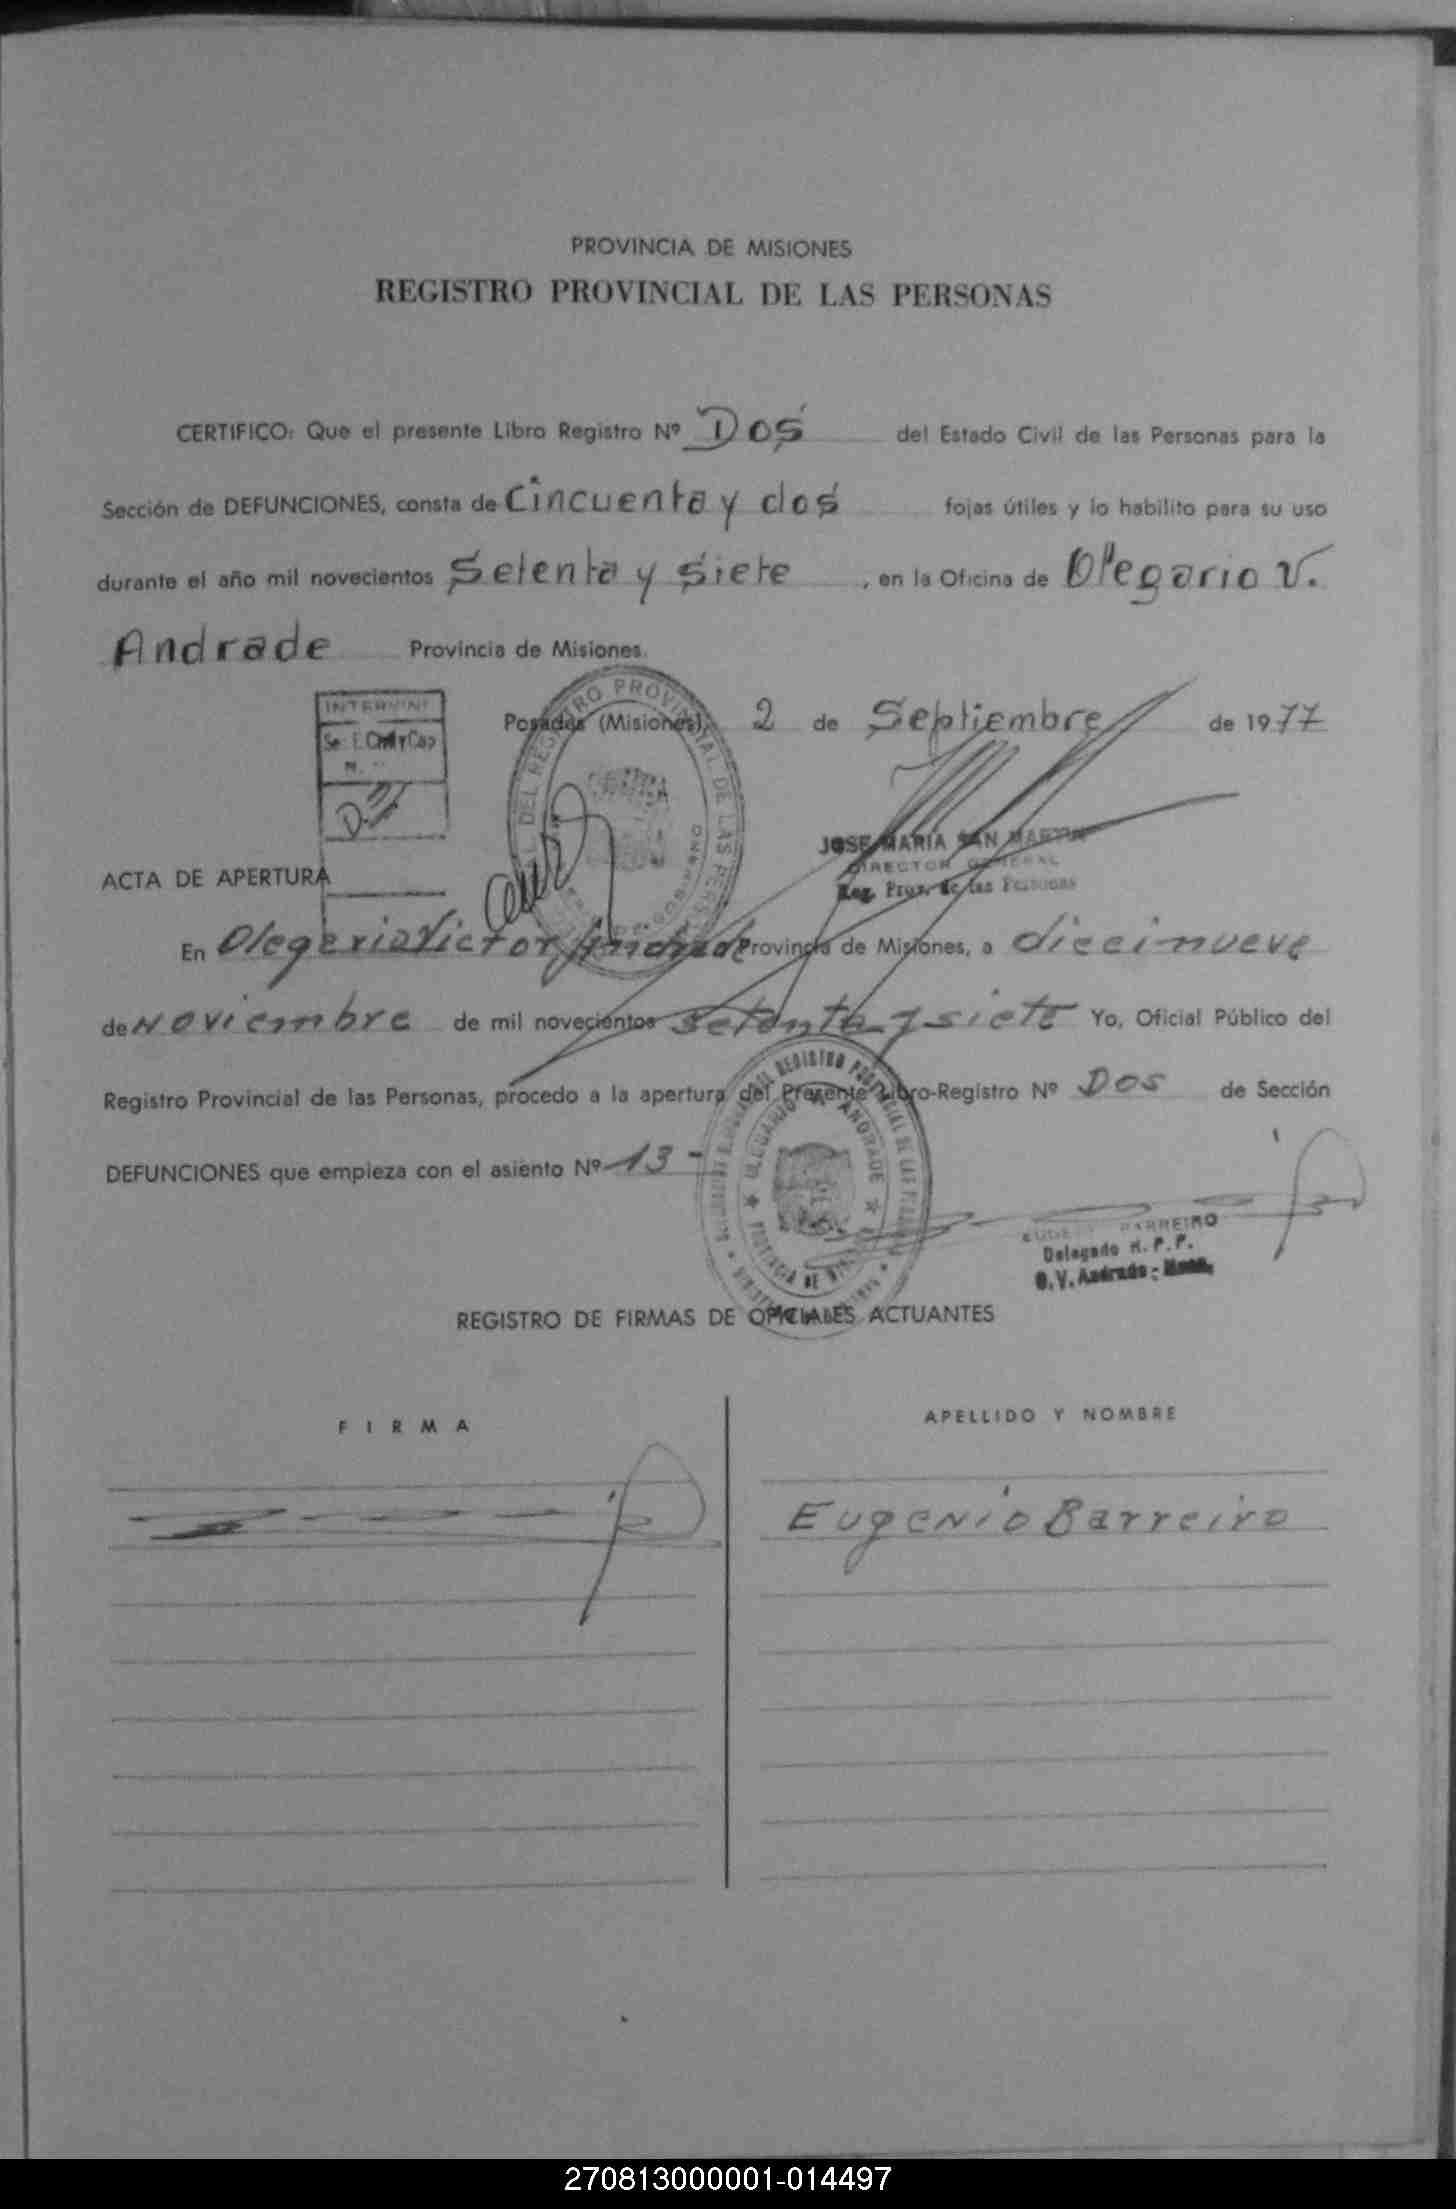 PROVINCIA DE MISIONES
REGISTRO PROVINCIAL DE LAS PERSONAS
CERTIFICO: Que el presente Libro Registro Nº Dos del Estado Civil de las Personas para la
Sección de DEFUNCIONES, consta de Cincuenta y dos fojas útiles y lo habilito para su uso
durante el año mil novecientos Setenta y Siete, en la Oficina de Olegario V.
Andrade Provincia de Misiones.
Posadas (Misiones), 2 de Septiembre de 1977
INTERVINO
JOSE MARIA SAN MARTIN
DIRECTOR GENERAL
Reg. Prov. de las Personas
ACTA DE APERTURA
En Olegario Victor Andrade Provincia de Misiones, a diecinueve
de Noviembre de mil novecientos setenta y siete Yo, Oficial Público del
Registro Provincial de las Personas, procedo a la apertura del Presente Libro-Registro Nº Dos de Sección
DEFUNCIONES que empieza con el asiento Nº 13 -
EUGENIO BARREIRO
Delegado R. P. P.
O. V. Andrade - Mnes.
REGISTRO DE FIRMAS DE OFICIALES ACTUANTES
FIRMA
APELLIDO Y NOMBRE
Eugenio Barreiro
270813000001-014497